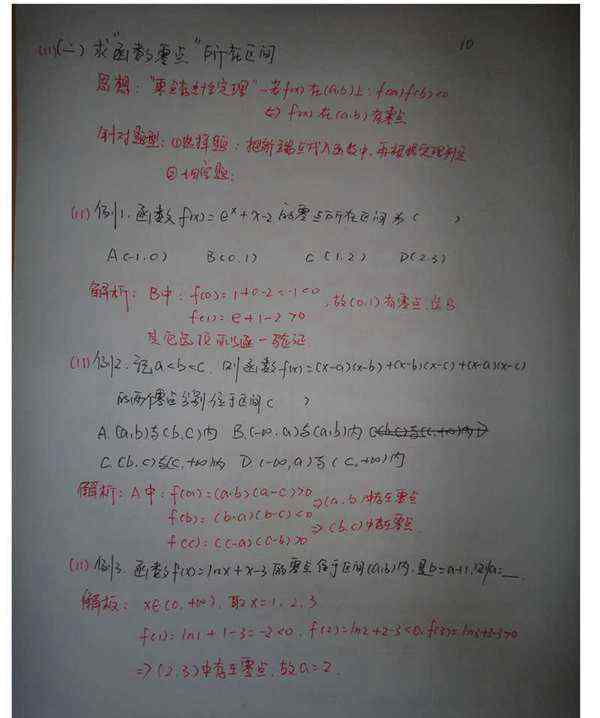 (11)(二) 求"函数零点"所在区间
10
思想："零点存在性定理"－若f(x)在(a,b)上：f(a)f(b)<0
⇔ f(x)在(a,b)有零点
针对题型：①选择题：把新端点代入函数中，再根据定理判定
②填空题：
(11) 例1. 函数 f(x)=e^x+x-2 的零点所在区间为（ ）
A(-1,0) B(0,1) C(1,2) D(2,3)
解析：B中：f(0)=1+0-2=-1<0
f(1)=e+1-2>0
，故(0,1)有零点，选B
其它选项可以逐一验证.
(11) 例2. 记a<b<c. 则函数f(x)=(x-a)(x-b)+(x-b)(x-c)+(x-a)(x-c)
的两个零点分别位于区间（ ）
A. (a,b)与(b,c)内 B. (-∞,a)与(a,b)内
C. (b,c)与(c,+∞)内 D. (-∞,a)与(c,+∞)内
解析：A中：f(a)=(a-b)(a-c)>0
f(b)=(b-a)(b-c)<0
f(c)=(c-a)(c-b)>0
⇒(a,b)中存在零点
⇒(b,c)中存在零点.
(11) 例3. 函数f(x)=lnx+x-3的零点位于区间(a,b)内，且b=a+1，则a=__.
解析：x∈(0,+∞), 取x=1,2,3
f(1)=ln1+1-3=-2<0, f(2)=ln2+2-3<0, f(3)=ln3+3-3>0
⇒(2,3)中存在零点，故a=2.